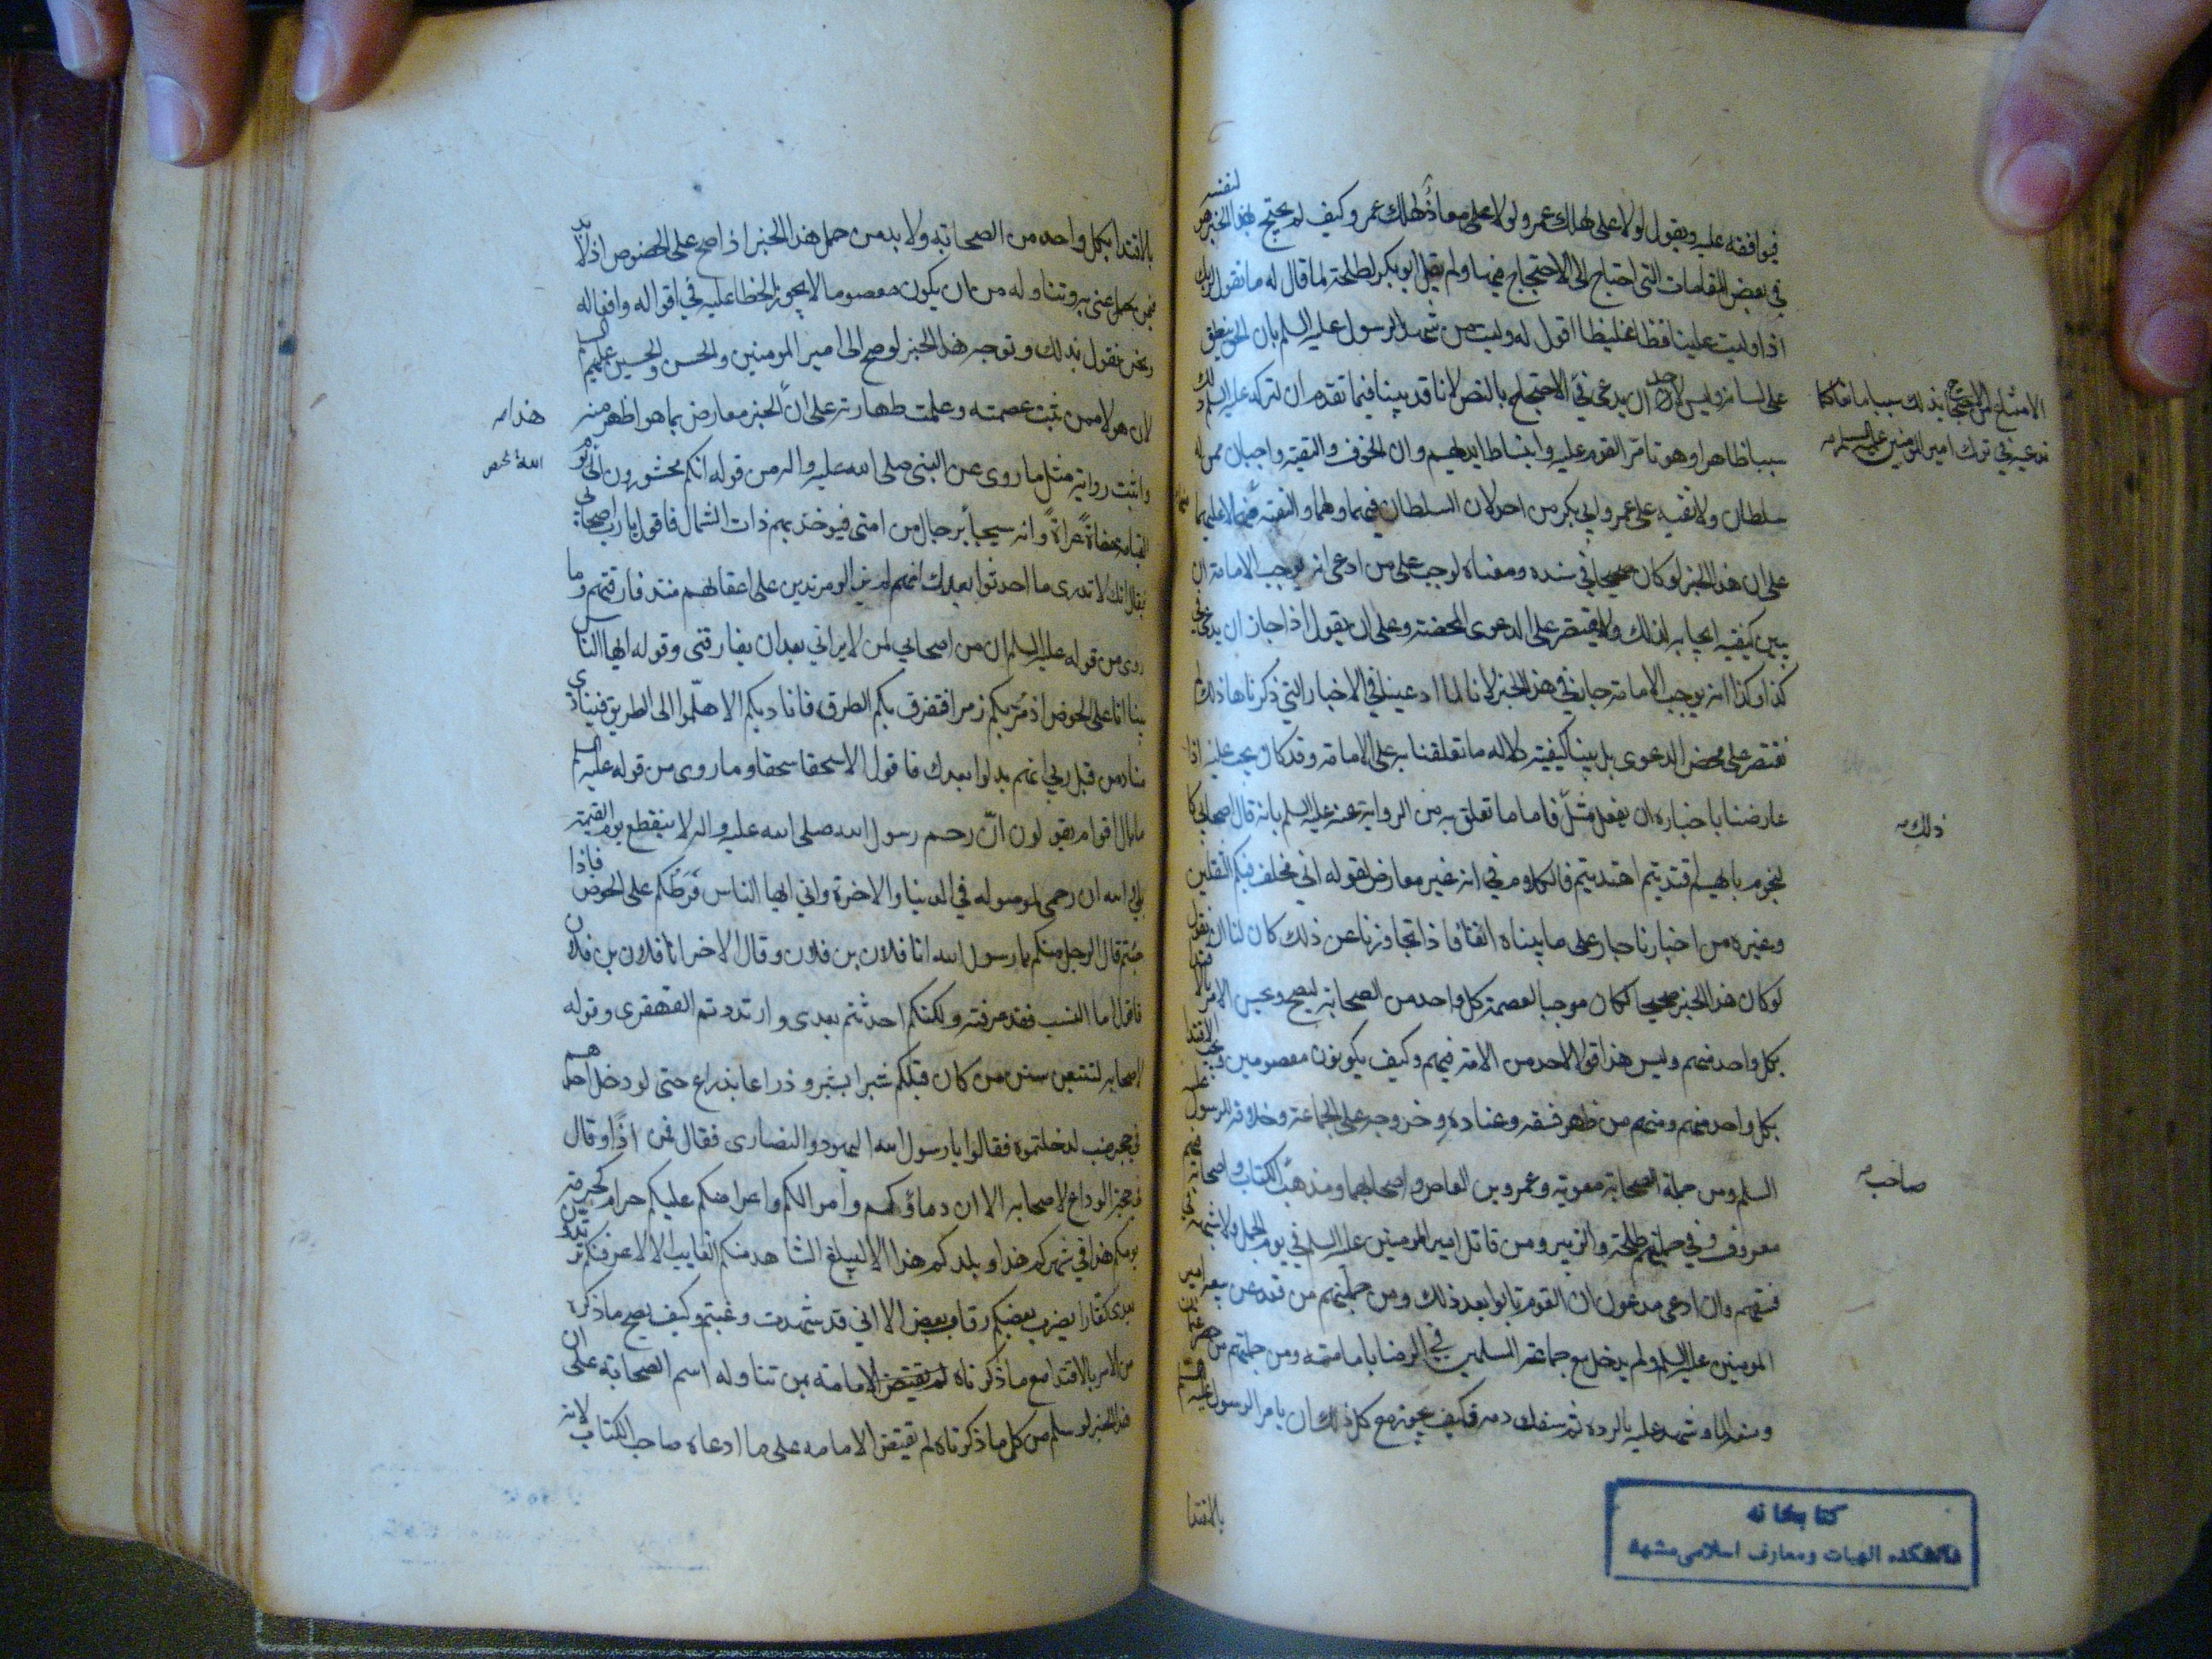 فيوافقه عليه ويقول لولا على لهلك عمر ولولا معاذ لهلك عمر وكيف لم يحتج بهذا الخبر هو لنفسه
في بعض المقامات التي احتاج الى الاحتجاج فيها ولم يقل ابو بكر لطلحة لما قال له ما تقول لربك
اذا وليت علينا فظا غليظا اقول له وليت من شهد الرسول عليه السلم بان الحق ينطق
على لسانه وليس لاحد ان يدعى في الاحتجاج بالنص لانا قد بينا فيما تقدم ان لتركه عليه السلم ذلك
سببا ظاهرا وهو تامر القوم عليه وانبساط ايديهم وان الخوف والتقية واجبان ممن له
سلطان ولا تقية على عمر وابي بكر من احد لان السلطان فيهما ولهما والتقية منهما لا عليهما
على ان هذا الخبر لو كان صحيحا في سنده ومعناه لوجب على من ادعى انه يوجب الامامة ان
يبين كيفيه ايجابه لذلك ولا يقتصر على الدعوى المحضة وعلى ان يقول اذا جاز ان يدعى في
كذا وكذا انه يوجب الامامة جاز في هذا الخبر لانا لما ادعينا في الاخبار التي ذكرناها ذلك لم
نقتصر على محض الدعوى بل بينا كيفية دلاله ما تعلقنا به على الامامة وقد كان يجب عليه اذا
عارضنا باخباره ان يفعل مثل فاما ما تعلق به من الرواية عنه عليه السلم بانه قال اصحابي كا
لنجوم بايهم اقتديتم اهتديتم فالكلام في انه غير معارض لقوله اني مخلف فيكم الثقلين
وغيره من اخبارنا جار على ما بيناه انفا فاذا تجاوزنا عن ذلك كان لنا ان نقول
لو كان هذا الخبر صحيحا لكان موجبا لعصمة كل واحد من الصحابة ليصح ويحسن الامر بالاقتدا
بكل واحد منهم وليس هذا قولا لاحد من الامة فيهم وكيف يكونون معصومين ويجب الاقتدا
بكل واحد منهم ومنهم من ظهر فسقه وعناده وخروجه على الجماعة وخلافه للرسول عليه
السلم ومن جملة الصحابة معوية وعمرو بن العاص واصحابهما ومذهب الكتاب واصحابه فيهم
معروف وفي جملتهم طلحة والزبير ومن قاتل امير المومنين عليه السلم في يوم الجمل ولا شبهة في
فسقهم وان ادعى مدعون ان القوم تابوا بعد ذلك ومن جملتهم من قعد عن بيعة امير
المومنين عليه السلم ولم يدخل مع جماعة المسلمين في الرضا بامامته ومن جملتهم من حصر عثمان
ومنعه الماء وشهد عليه بالردة ثم سفك دمه فكيف يجوز مع كل ذلك ان يامر الرسول عليه السلم
بالاقتدا
ذلك
صاحب
كتابخانه
دانشكده الهيات ومعارف اسلامى مشهد
بالاقتدا بكل واحد من الصحابة ولا بد من حمل هذا الخبر اذا صح على الخصوص اذ لا بد
فيمن عنى به وتناوله من ان يكون معصوما لا يجوز الخطا عليه في اقواله وافعاله
ونحن نقول بذلك ونوجه هذا الخبر لو صح الى امير المومنين والحسن والحسين عليهم السلم
لان هولا ممن ثبتت عصمته وعلمت طهارته على ان الخبر معارض بما هو اظهر منه
واثبت رواية مثل ما روى عن النبي صلى الله عليه واله من قوله انكم محشورون الى الله يوم
القيامة حفاة عراة وانه سيجاء برجال من امتي فيوخذ بهم ذات الشمال فاقول يا رب اصحابي
فيقال انك لا تدري ما احدثوا بعدك انهم لم يزالوا مرتدين على اعقابهم منذ فارقتهم وما
روى من قوله عليه السلم ان من اصحابي لمن لا يراني بعد ان يفارقني وقوله ايها الناس
بينا انا على الحوض اذ مر بكم زمرا فتفرق بكم الطرق فاناديكم الا هلموا الى الطريق فينادي
مناد من قبل ربي انهم بدلوا بعدك فاقول الا سحقا سحقا وما روى من قوله عليه السلم
ما بال اقوام يقولون ان رحم رسول الله صلى الله عليه واله لا ينقطع يوم القيمة
بلى والله ان رحمي لموصوله في الدنيا والاخرة واني ايها الناس فرطكم على الحوض فاذا
جئتم قال الرجل منكم يا رسول الله انا فلان بن فلان وقال الاخر انا فلان بن فلان
فاقول اما النسب فقد عرفته ولكنكم احدثتم بعدى وارتددتم القهقرى وقوله
لاصحابه لتتبعن سنن من كان قبلكم شبرا بشبر وذراعا بذراع حتى لو دخل احدهم
في جحر ضب لدخلتموه فقالوا يا رسول الله اليهود والنصارى فقال فمن اذا وقال
في حجة الوداع لاصحابه الا ان دماؤكم واموالكم واعراضكم عليكم حرام كحرمة
يومكم هذا في شهركم هذا وبلدكم هذا الا ليبلغ الشاهد منكم الغايب الا لاعرفنكم ترتدون
بعدى كفارا يضرب بعضكم رقاب بعض الا اني قد شهدت وغبتم وكيف يصح ما ذكره
من الامر بالاقتدا مع ما ذكرناه لم يقتض الامامة بمن تناوله اسم الصحابة على ان
هذا الخبر لو سلم من كل ما ذكرناه لم يقتض الامامه على ما ادعاه صاحب الكتاب لانه
هذا